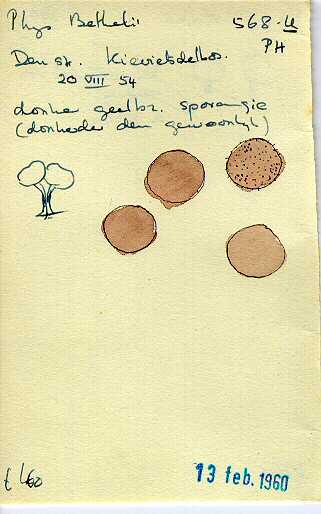 Phys Bethelii 568-U
PH
Den str. Kievietsdelbos.
20 VIII 54
donker geelbr. sporangie
(donkerder den gewoonlijk)
13 feb. 1960